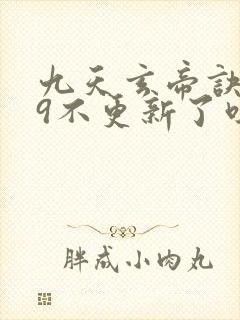 九天玄帝诀
9不更新了吗
胖成小肉丸